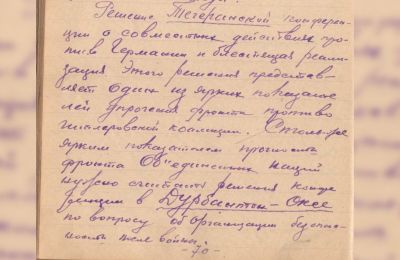 Решение Тегеранской конферен-
ции о совместных действиях про-
тив Германии и блестящая реали-
зация этого решения представ-
ляет один из ярких показате-
лей упрочения фронта противо
гитлеровской коалиции. Столь же
ярким показателем прочности
фронта Об'единенных наций
нужно считать решения конфе-
ренции в Думбартон-Оксе
по вопросу об организации безопас-
ности после войны.
-70-